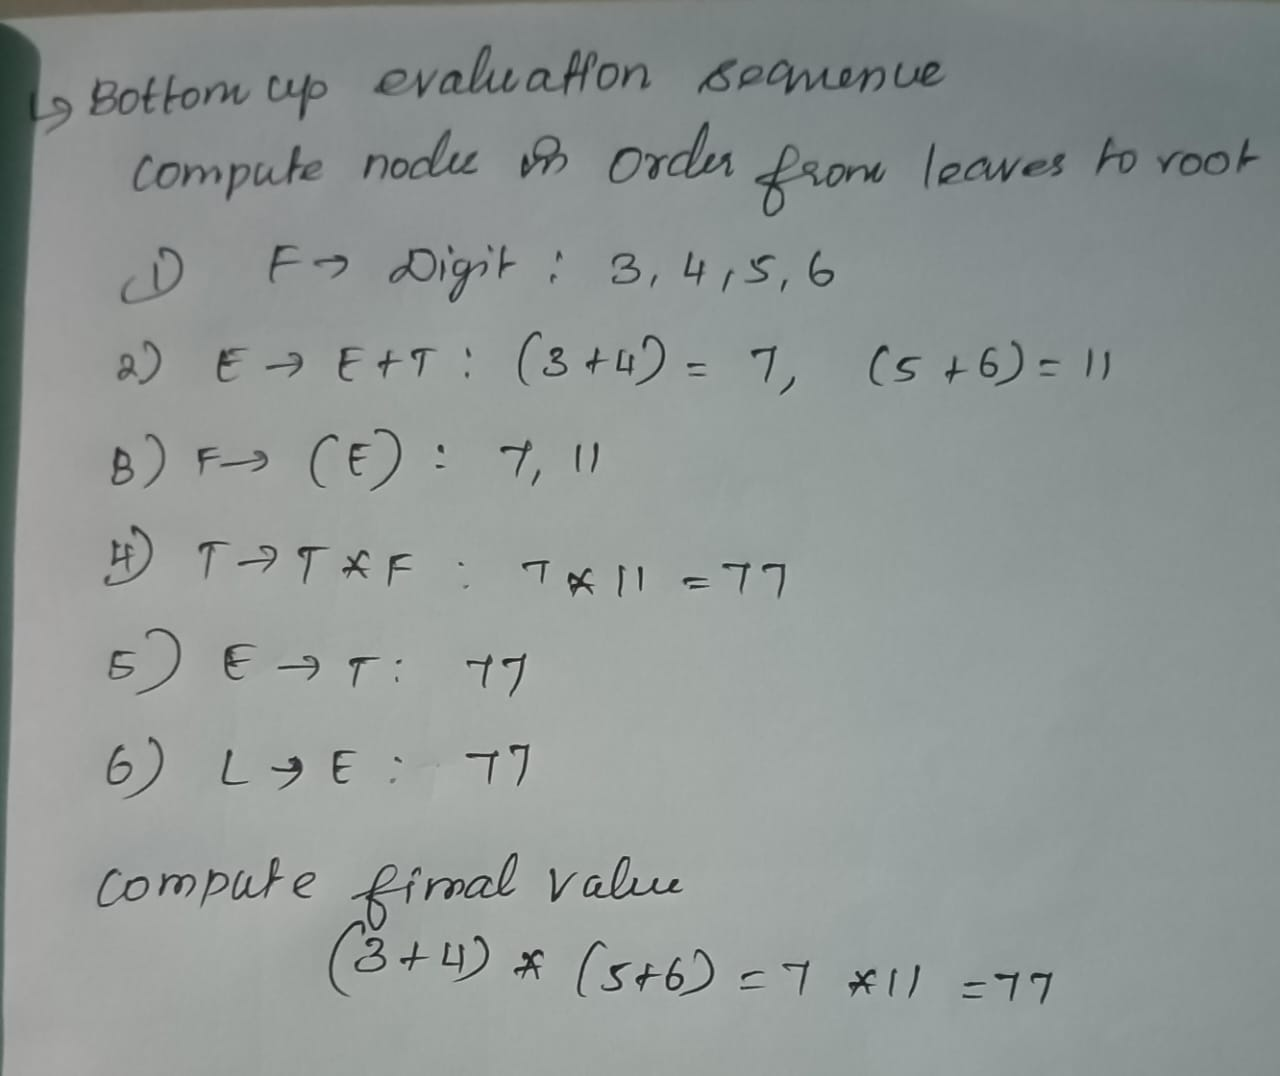 ↳ Bottom up evaluation sequence
compute node in order from leaves to root
1) F → Digit : 3, 4, 5, 6
2) E → E+T : (3+4) = 7, (5+6) = 11
3) F → (E) : 7, 11
4) T → T * F : 7 * 11 = 77
5) E → T : 77
6) L → E : 77
compute final value
(3+4) * (5+6) = 7 * 11 = 77